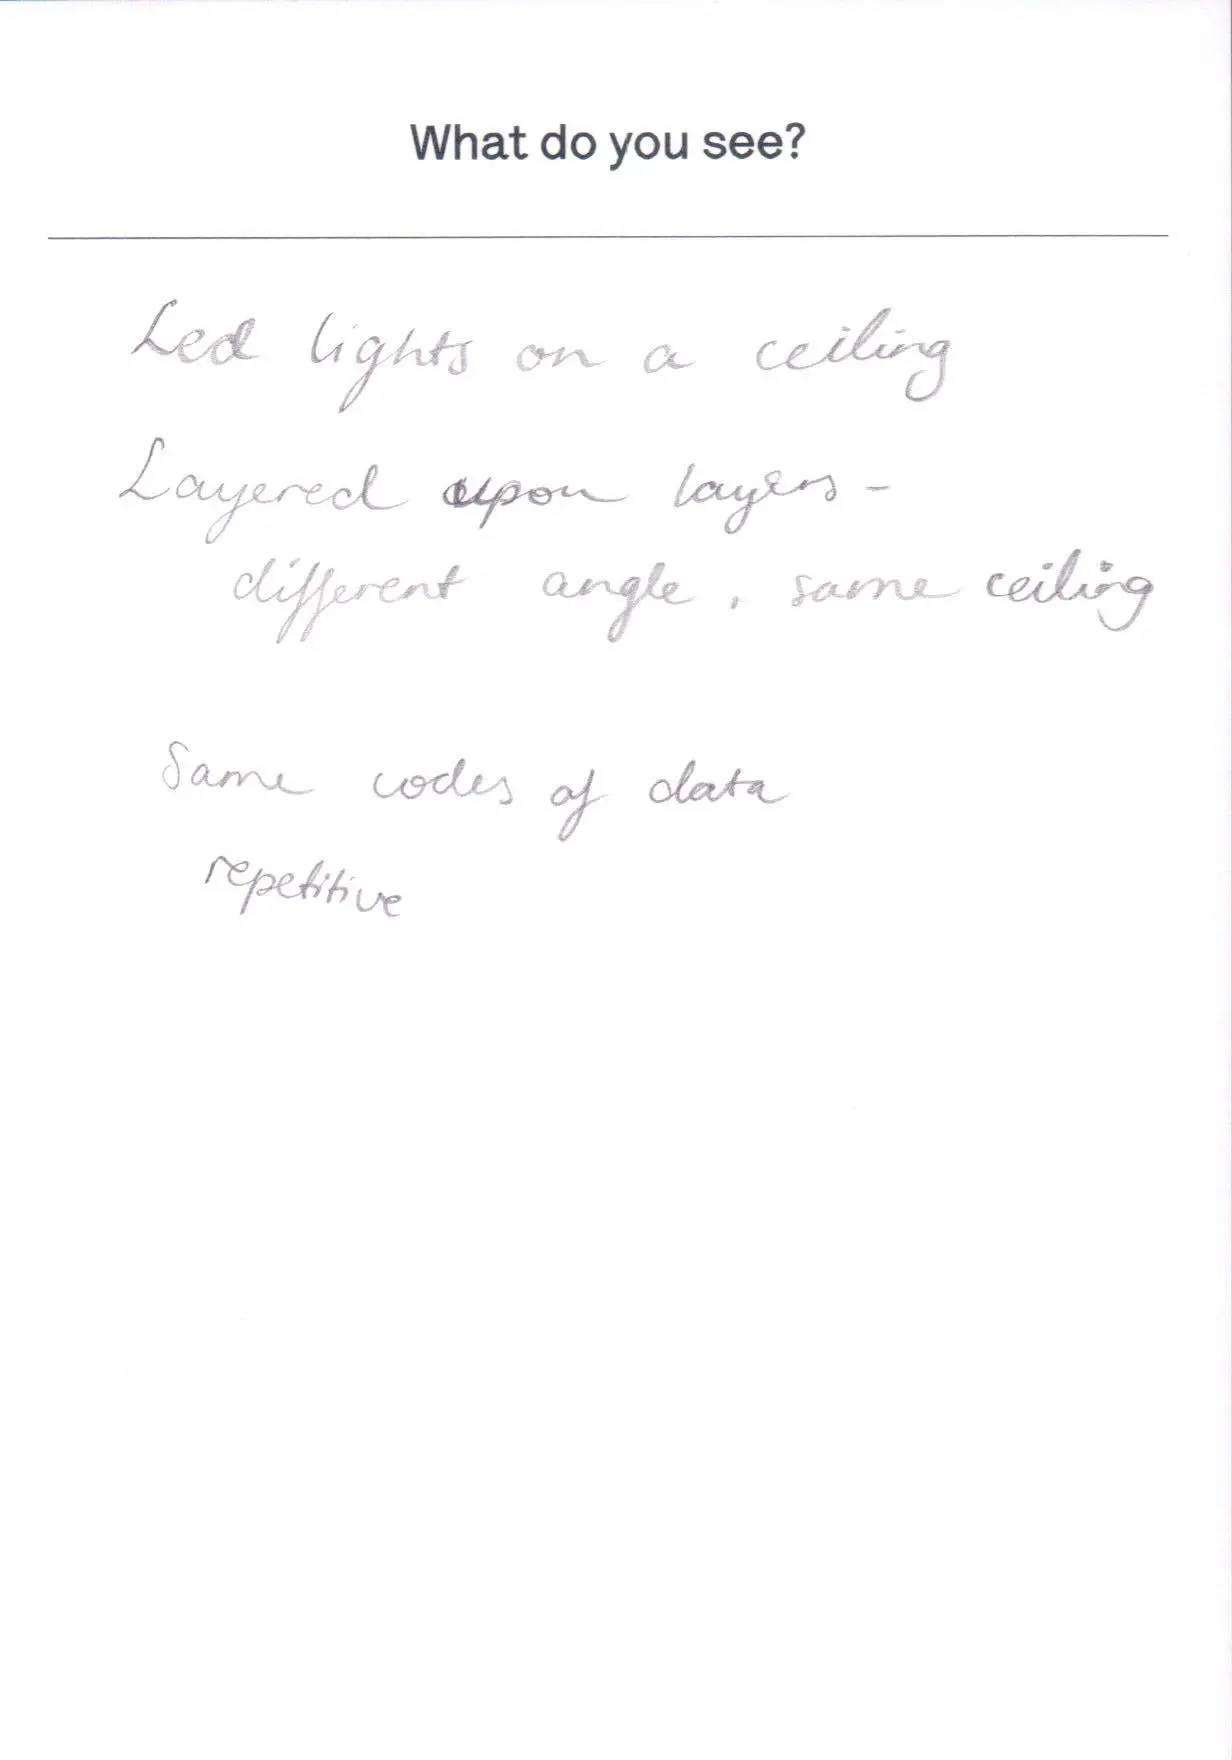 What do you see?
Led lights on a ceiling
Layered upon layers -
different angle, same ceiling
Same codes of data
repetitive